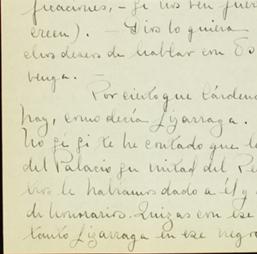 ficaciones, - si nos ven fuer
creen). - Dios lo quiera
clos deseos de hablar con Vd
venga. -
Por cierto que Cárdena
hay, como decía Lizarraga.
No sé si te he contado que l
del Palacio su mitad del Pe
nos le habíamos dado a él y
de honorarios. Quizás con ese
tanto Lizarraga en ese negro